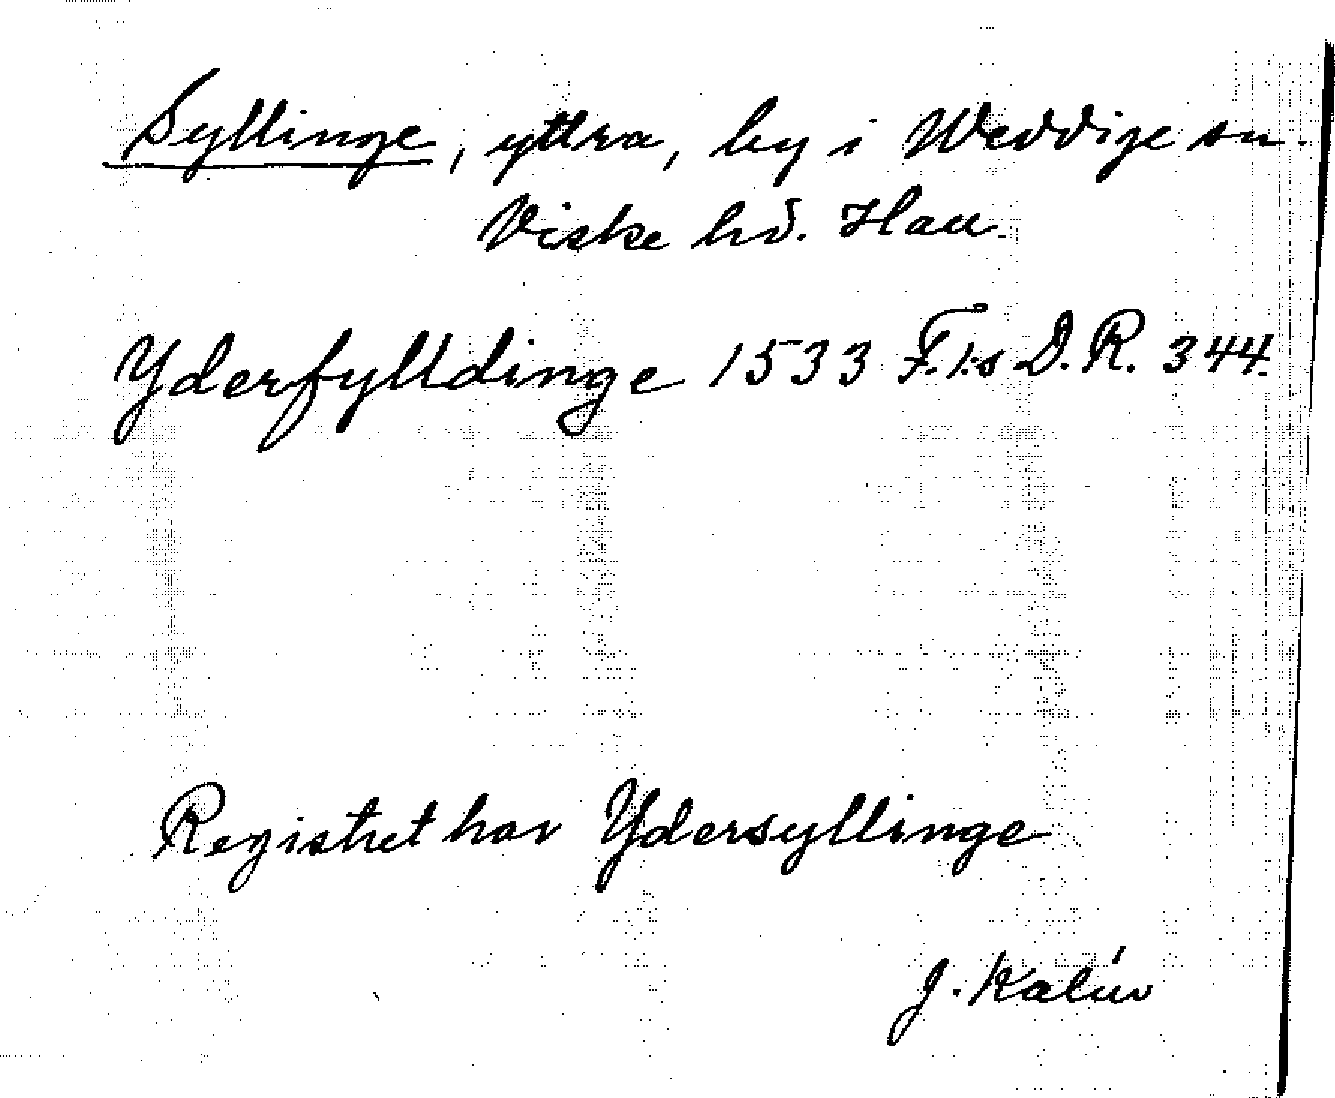 Syllinge, yttra, by i Weddige sn.
Viske hd. Hall
Yderfylldinge 1533 F. I:s D. R. 344.
Registret har Ydersyllinge
J. Kalén